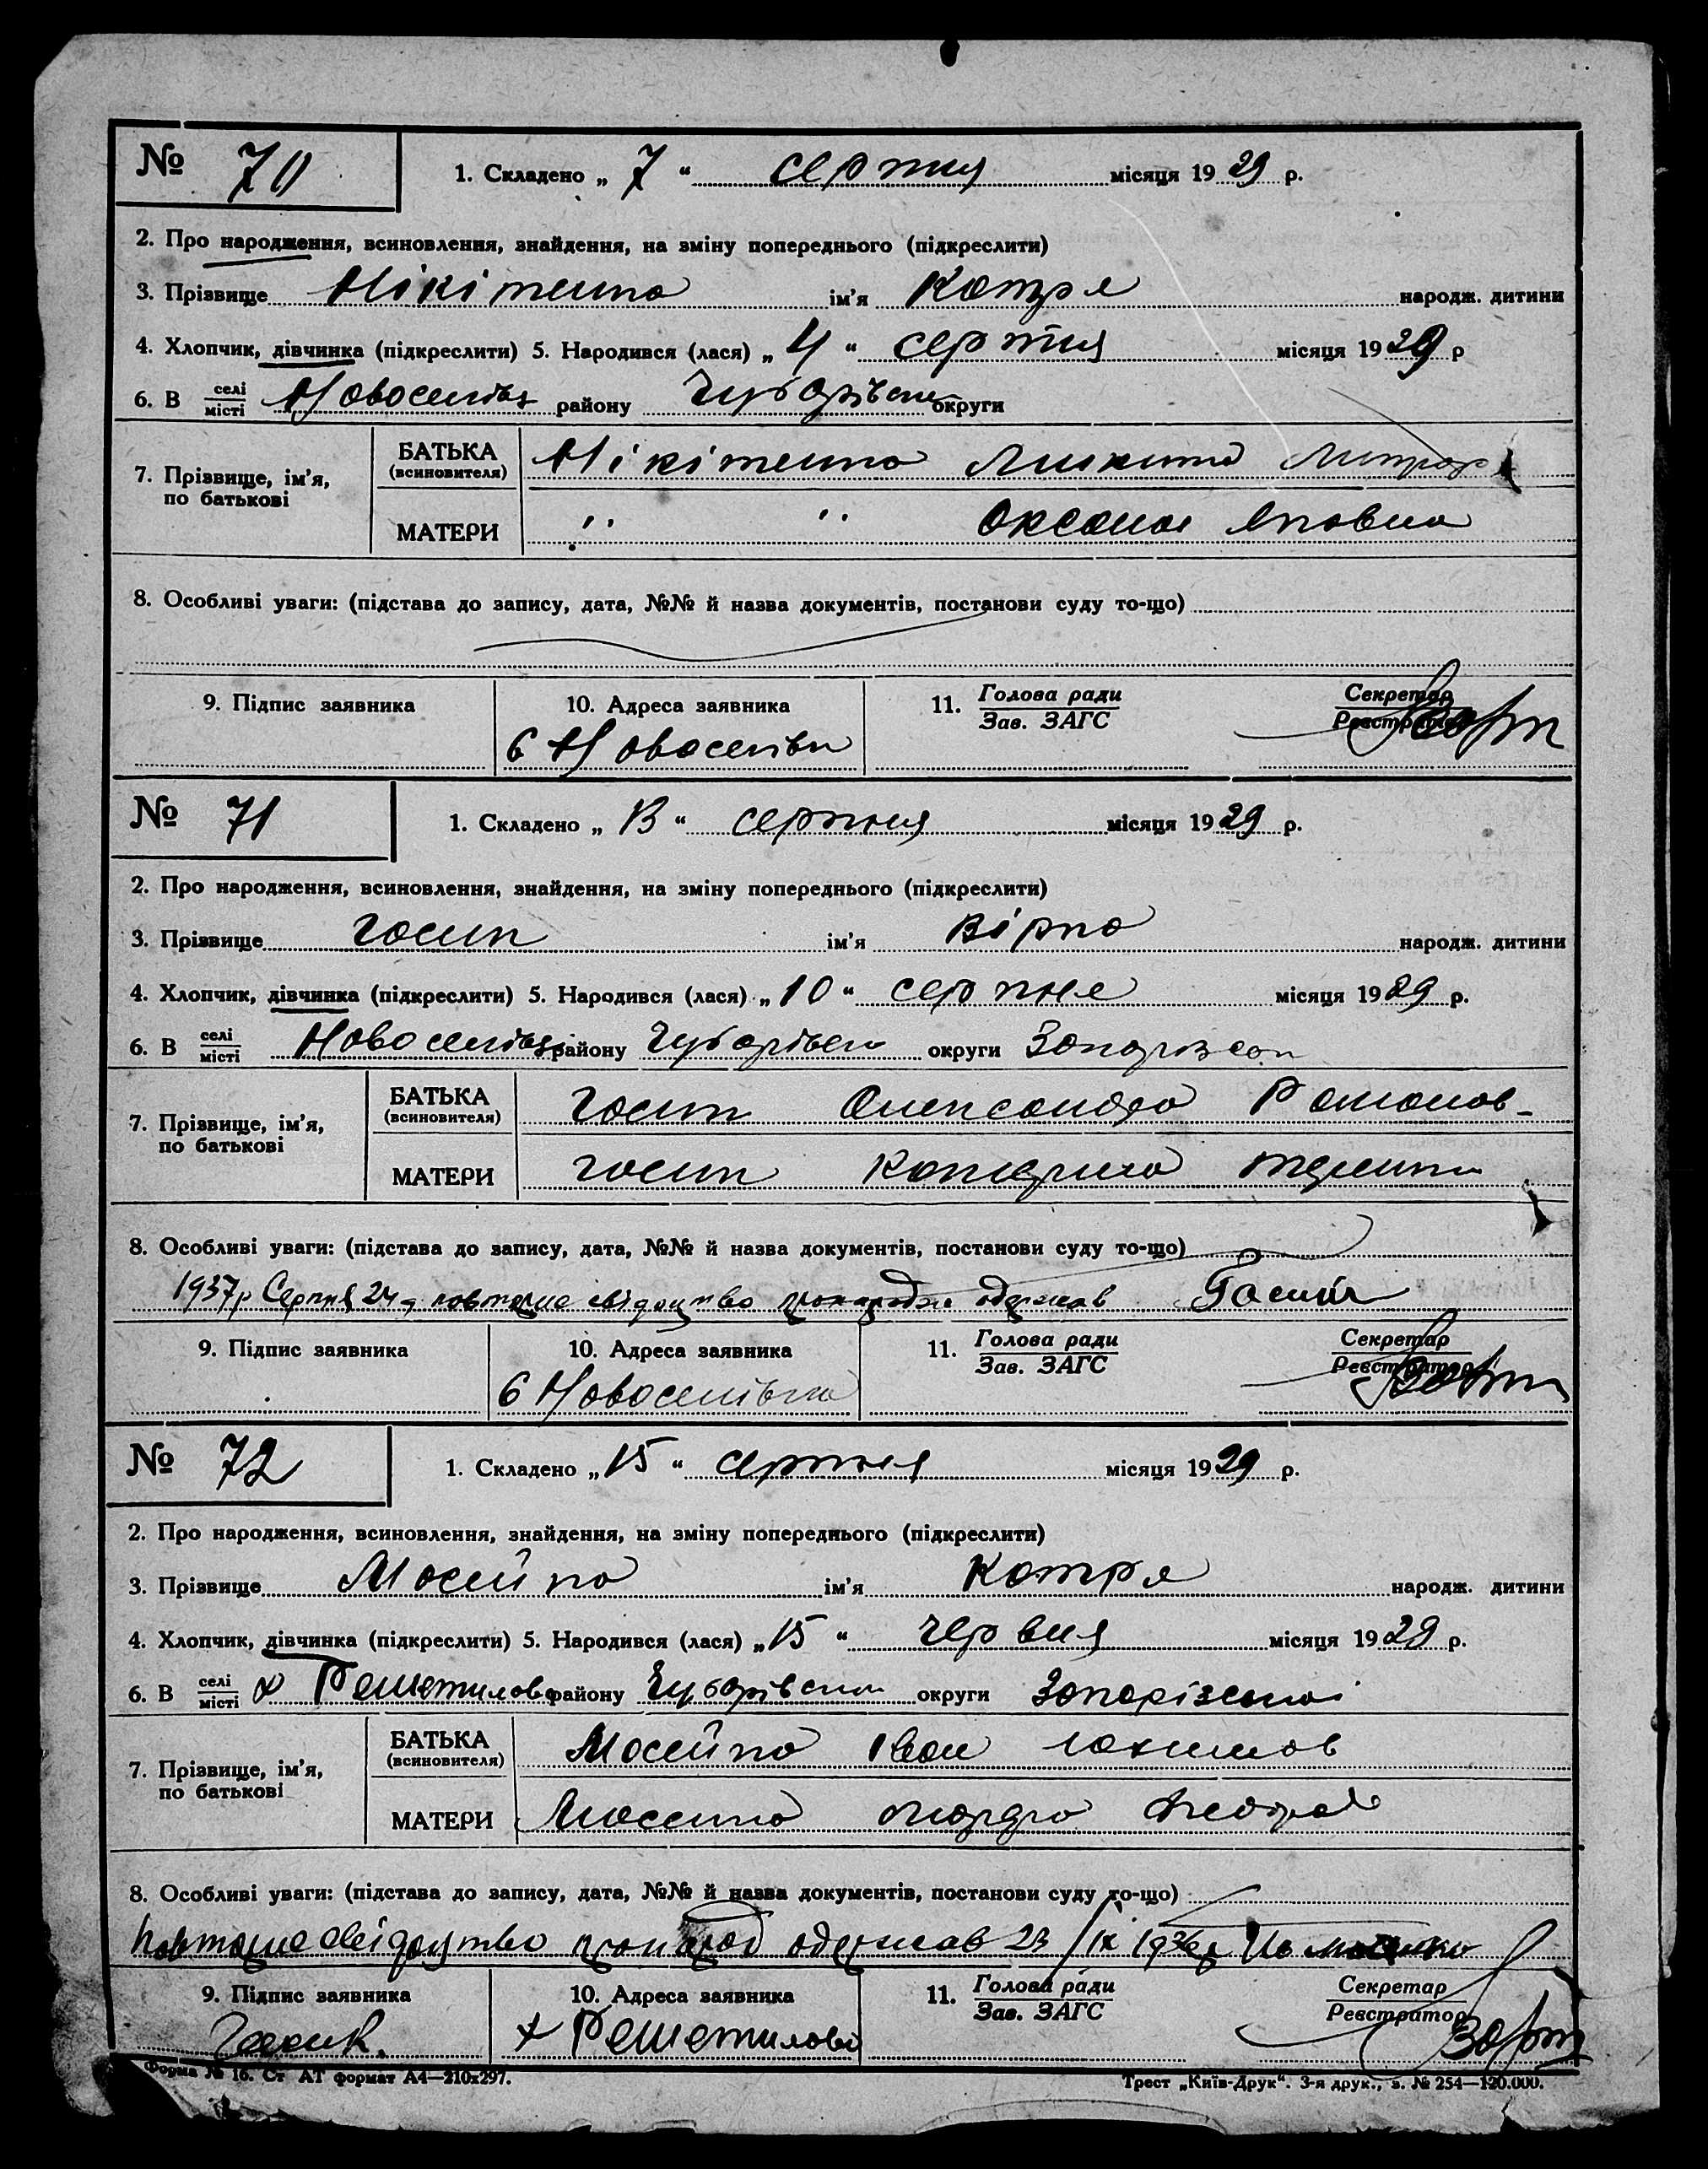 № 70 1. Складено „ 7 “ серпня місяця 1929 р.
2. Про народження, всиновлення, знайдення, на зміну попереднього (підкреслити)
3. Прізвище Нікітенко ім'я Катря народж. дитини
4. Хлопчик, дівчинка (підкреслити) 5. Народився (лася) „ 4 “ серпня місяця 1929 р
6. В селі/місті Новоселівц району Чубарівськ округи
7. Прізвище, ім'я, по батькові
БАТЬКА (всиновителя) Нікітенко Микита
МАТЕРИ " " Оксана
8. Особливі уваги: (підстава до запису, дата, №№ й назва документів, постанови суду то-що)
9. Підпис заявника 10. Адреса заявника 11. Голова ради/Зав. ЗАГС Секретар/Реєстратор
с Новоселівки
№ 71 1. Складено „ 13 “ серпня місяця 1929 р.
2. Про народження, всиновлення, знайдення, на зміну попереднього (підкреслити)
3. Прізвище Госип ім'я Вірка народж. дитини
4. Хлопчик, дівчинка (підкреслити) 5. Народився (лася) „ 10 “ серпня місяця 1929 р.
6. В селі/місті Новоселівц району Чубарівськ округи Запорізьк
7. Прізвище, ім'я, по батькові
БАТЬКА (всиновителя) Госип Олександр Романов-
МАТЕРИ Госип Катерина
8. Особливі уваги: (підстава до запису, дата, №№ й назва документів, постанови суду то-що)
1937р Серпня 24 д повторне свідоцтво про народж одержав
9. Підпис заявника 10. Адреса заявника 11. Голова ради/Зав. ЗАГС Секретар/Реєстратор
с Новоселівка
№ 72 1. Складено „ 15 “ серпня місяця 1929 р.
2. Про народження, всиновлення, знайдення, на зміну попереднього (підкреслити)
3. Прізвище Мосейко ім'я Катря народж. дитини
4. Хлопчик, дівчинка (підкреслити) 5. Народився (лася) „ 15 “ червня місяця 1929 р.
6. В селі/місті х Решетилов району Чубарівськ округи Запорізької
7. Прізвище, ім'я, по батькові
БАТЬКА (всиновителя) Мосейко Іван Юхимов
МАТЕРИ Мосейко
8. Особливі уваги: (підстава до запису, дата, №№ й назва документів, постанови суду то-що)
повторне свідоцтво про народ одержав 23/ІХ 1936р
9. Підпис заявника 10. Адреса заявника 11. Голова ради/Зав. ЗАГС Секретар/Реєстратор
х Решетилово
Форма № 16. Ст АТ формат А4—210х297. Трест „Київ-Друк“. 3-я друк., з. № 254—120.000.